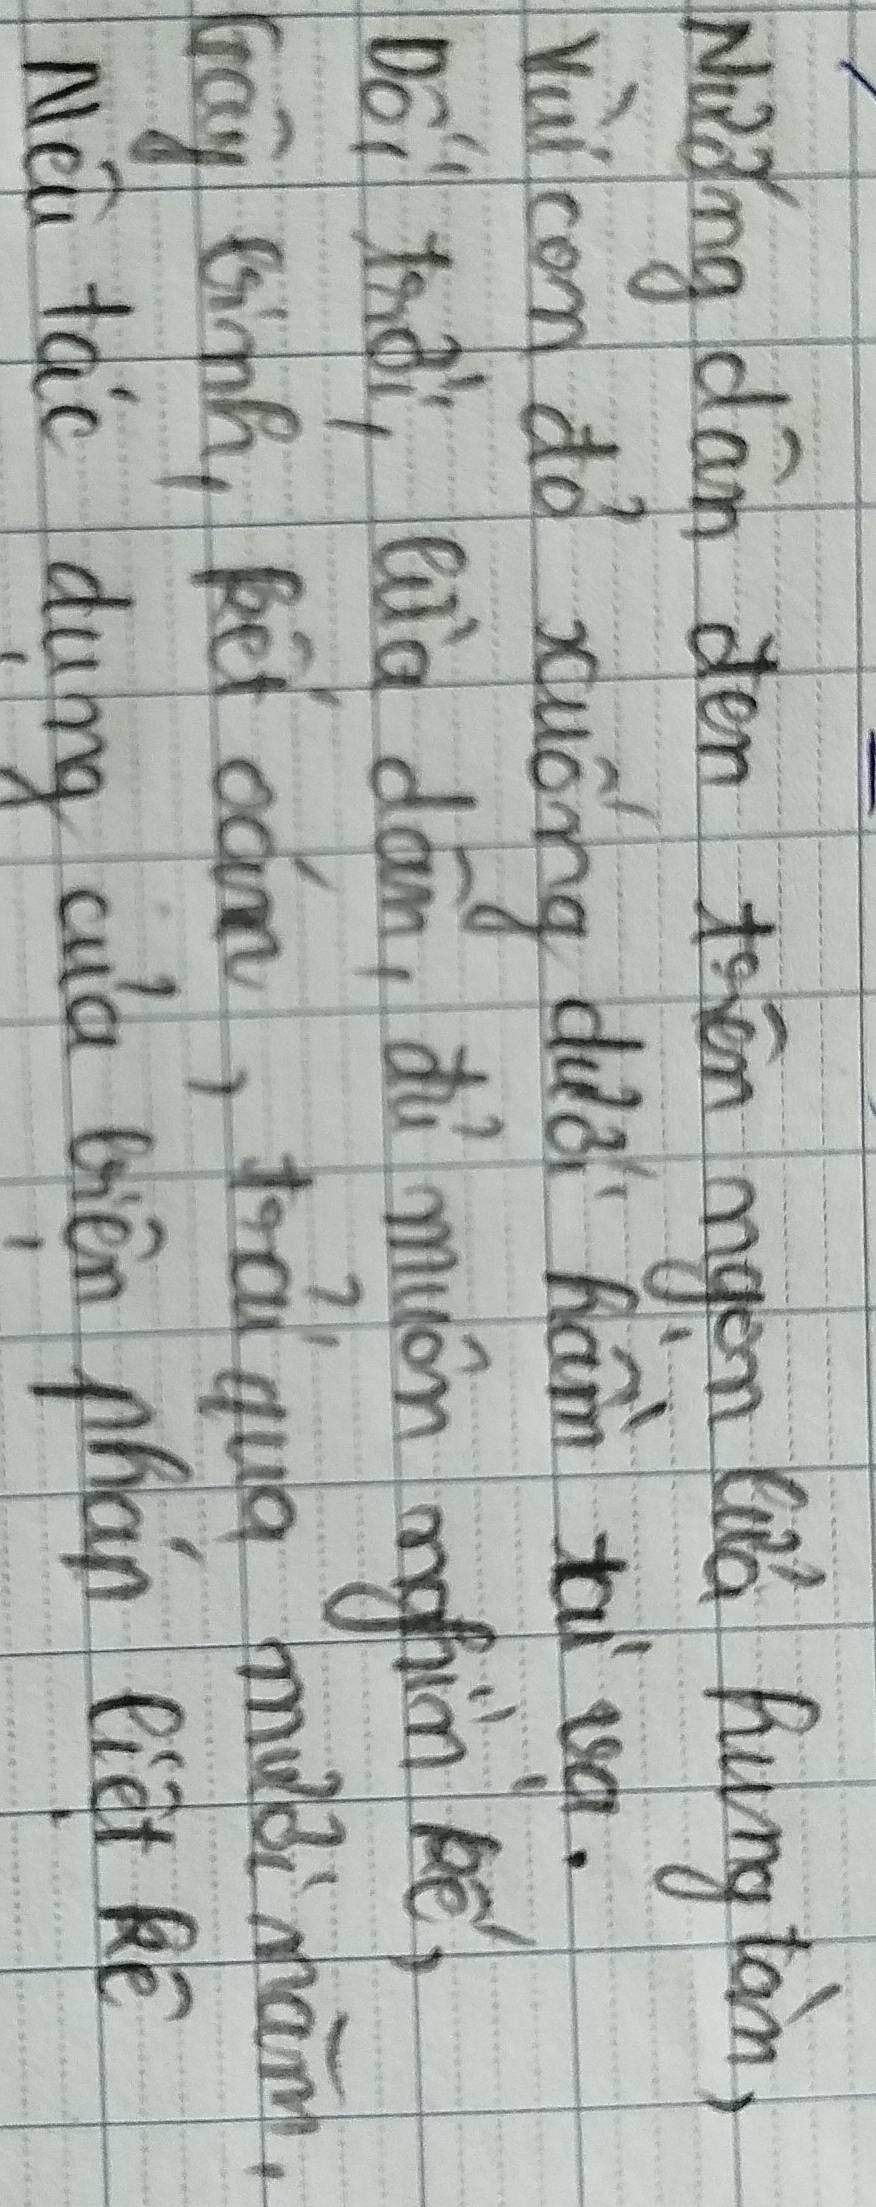 Nướng dân đen trên ngọn lửa hung tàn,
Vùi con đỏ xuống dưới hầm tai vạ.
Dối trời, lừa dân, đủ muôn nghìn kế,
Gây binh, kết oán, trải qua mười năm.
Nêu tác dụng của biện pháp liệt kê